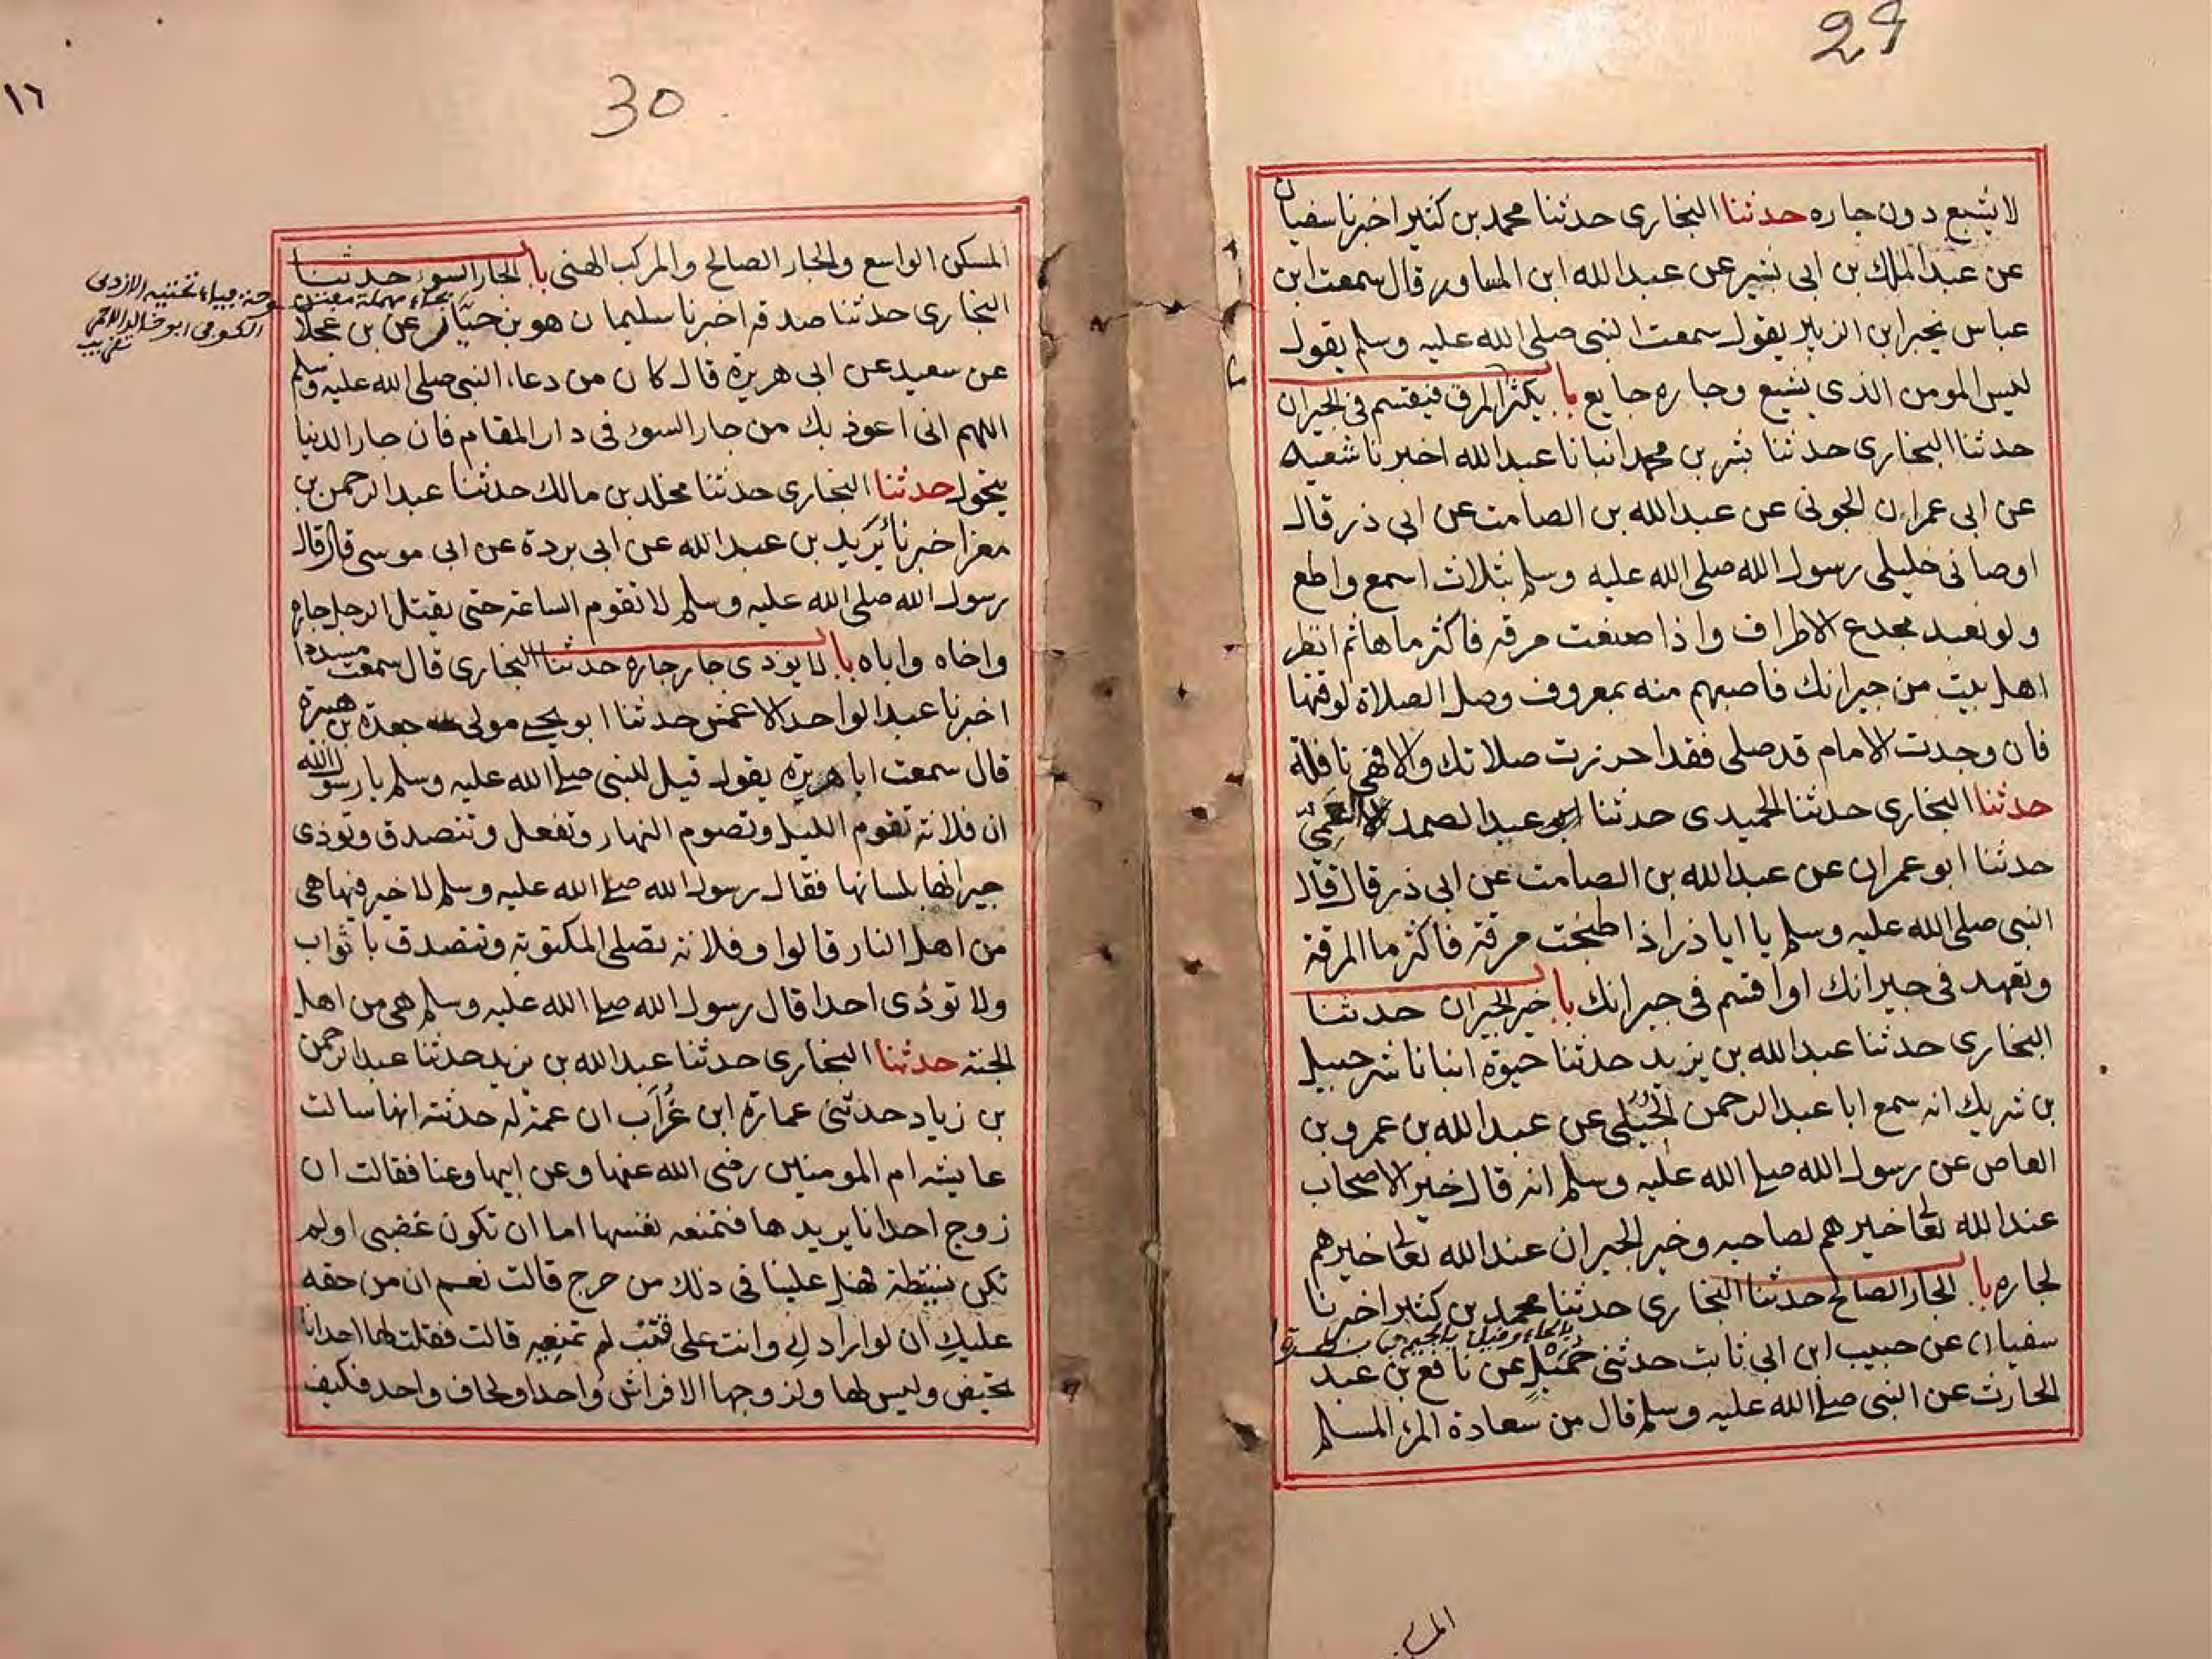 29
لا يشبع دون جاره حدثنا البخارى حدثنا محمد بن كثير اخبرنا سفيان
عن عبد الملك بن ابى بشير عن عبد الله ابن المساور قال سمعت ابن
عباس يخبر ابن الزبير يقول سمعت النبى صلى الله عليه وسلم يقول
ليس المومن الذى يشبع وجاره جايع با يكثر المرق فيقسم فى الجيران
حدثنا البخارى حدثنا بشر بن محمد انبانا عبد الله اخبرنا شعبه
عن ابى عمران الجونى عن عبد الله بن الصامت عن ابى ذر قال
اوصانى خليلى رسول الله صلى الله عليه وسلم بثلاث اسمع واطع
ولو لعبد مجدع الاطراف واذا صنعت مرقه فاكثر ماها ثم انظر
اهل بيت من جيرانك فاصبهم منه بمعروف وصل الصلاة لوقتها
فان وجدت الامام قد صلى فقد احرزت صلاتك والا فهى نافلة
حدثنا البخارى حدثنا الحميدى حدثنا ابو عبد الصمد العمى
حدثنا ابو عمران عن عبد الله بن الصامت عن ابى ذر قال قال
النبى صلى الله عليه وسلم يا ابا ذر اذا طبخت مرقة فاكثر ما المرقة
وتعهد فى جيرانك او اقسم فى جيرانك با خير الجيران حدثنا
البخارى حدثنا عبد الله بن يزيد حدثنا حيوة انبانا شرحبيل
بن شريك انه سمع ابا عبد الرحمن الحبلى عن عبد الله بن عمرو بن
العاص عن رسول الله صلى الله عليه وسلم انه قال خير الاصحاب
عند الله تعالى خيرهم لصاحبه وخير الجيران عند الله تعالى خيرهم
لجاره با الجار الصالح حدثنا البخارى حدثنا محمد بن كثير اخبرنا
بالخاء وقيل بالجيم
سفيان عن حبيب ابن ابى ثابت حدثنى خميل عن نافع بن عبد
الحارث عن النبى صلى الله عليه وسلم قال من سعادة المرء المسلم
30
١٦
المسكن الواسع والجار الصالح والمركب الهنى با الجار السوء حدثنا
البخارى حدثنا صدقه اخبرنا سليمان هو بن حيان عن بن عجلا
عن سعيد عن ابى هريرة قال كان من دعاء النبى صلى الله عليه وسلم
اللهم انى اعوذ بك من جار السوء فى دار المقام فان جار الدنيا
يتحول حدثنا البخارى حدثنا مخلد بن مالك حدثنا عبد الرحمن بن
مغرا خبرنا بُرَيد بن عبد الله عن ابى بردة عن ابى موسى قال قال
رسول الله صلى الله عليه وسلم لا تقوم الساعة حتى يقتل الرجل جاره
واخاه واباه با لا يوذى جار جاره حدثنا البخارى قال سمعت مسددا
اخبرنا عبد الواحد الاعمش حدثنا ابو يحيى مولى جعدة بن هبيرة
قال سمعت ابا هريرة يقول قيل للنبى صلى الله عليه وسلم يا رسول الله
ان فلانة تقوم الليل وتصوم النهار وتفعل وتتصدق وتوذى
جيرانها بلسانها فقال رسول الله صلى الله عليه وسلم لا خير فيها هى
من اهل النار قالوا وفلانة تصلى المكتوبة وتتصدق باثواب
ولا توذى احدا قال رسول الله صلى الله عليه وسلم هى من اهل
الجنة حدثنا البخارى حدثنا عبد الله بن يزيد حدثنا عبد الرحمن
بن زياد حدثنى عمارة ابن غُرَاب ان عمة له حدثته انها سالت
عايشه ام المومنين رضى الله عنها وعن ابيها وعنا فقالت ان
زوج احدانا يريدها فتمنعه نفسها اما ان تكون غضبى او لم
تكن نشيطة فهل علينا فى ذلك من حرج قالت نعم ان من حقه
عليكِ ان لو ارادكِ وانت على قتب لم تمنعيه قالت فقلت لها احدانا
تحيض وليس لها ولزوجها الا فراش واحد او لحاف واحد فكيف
بحاء مهملة
بياء تحتيه الازدى
الكوفى ابو خالد الاحمر
تقريب